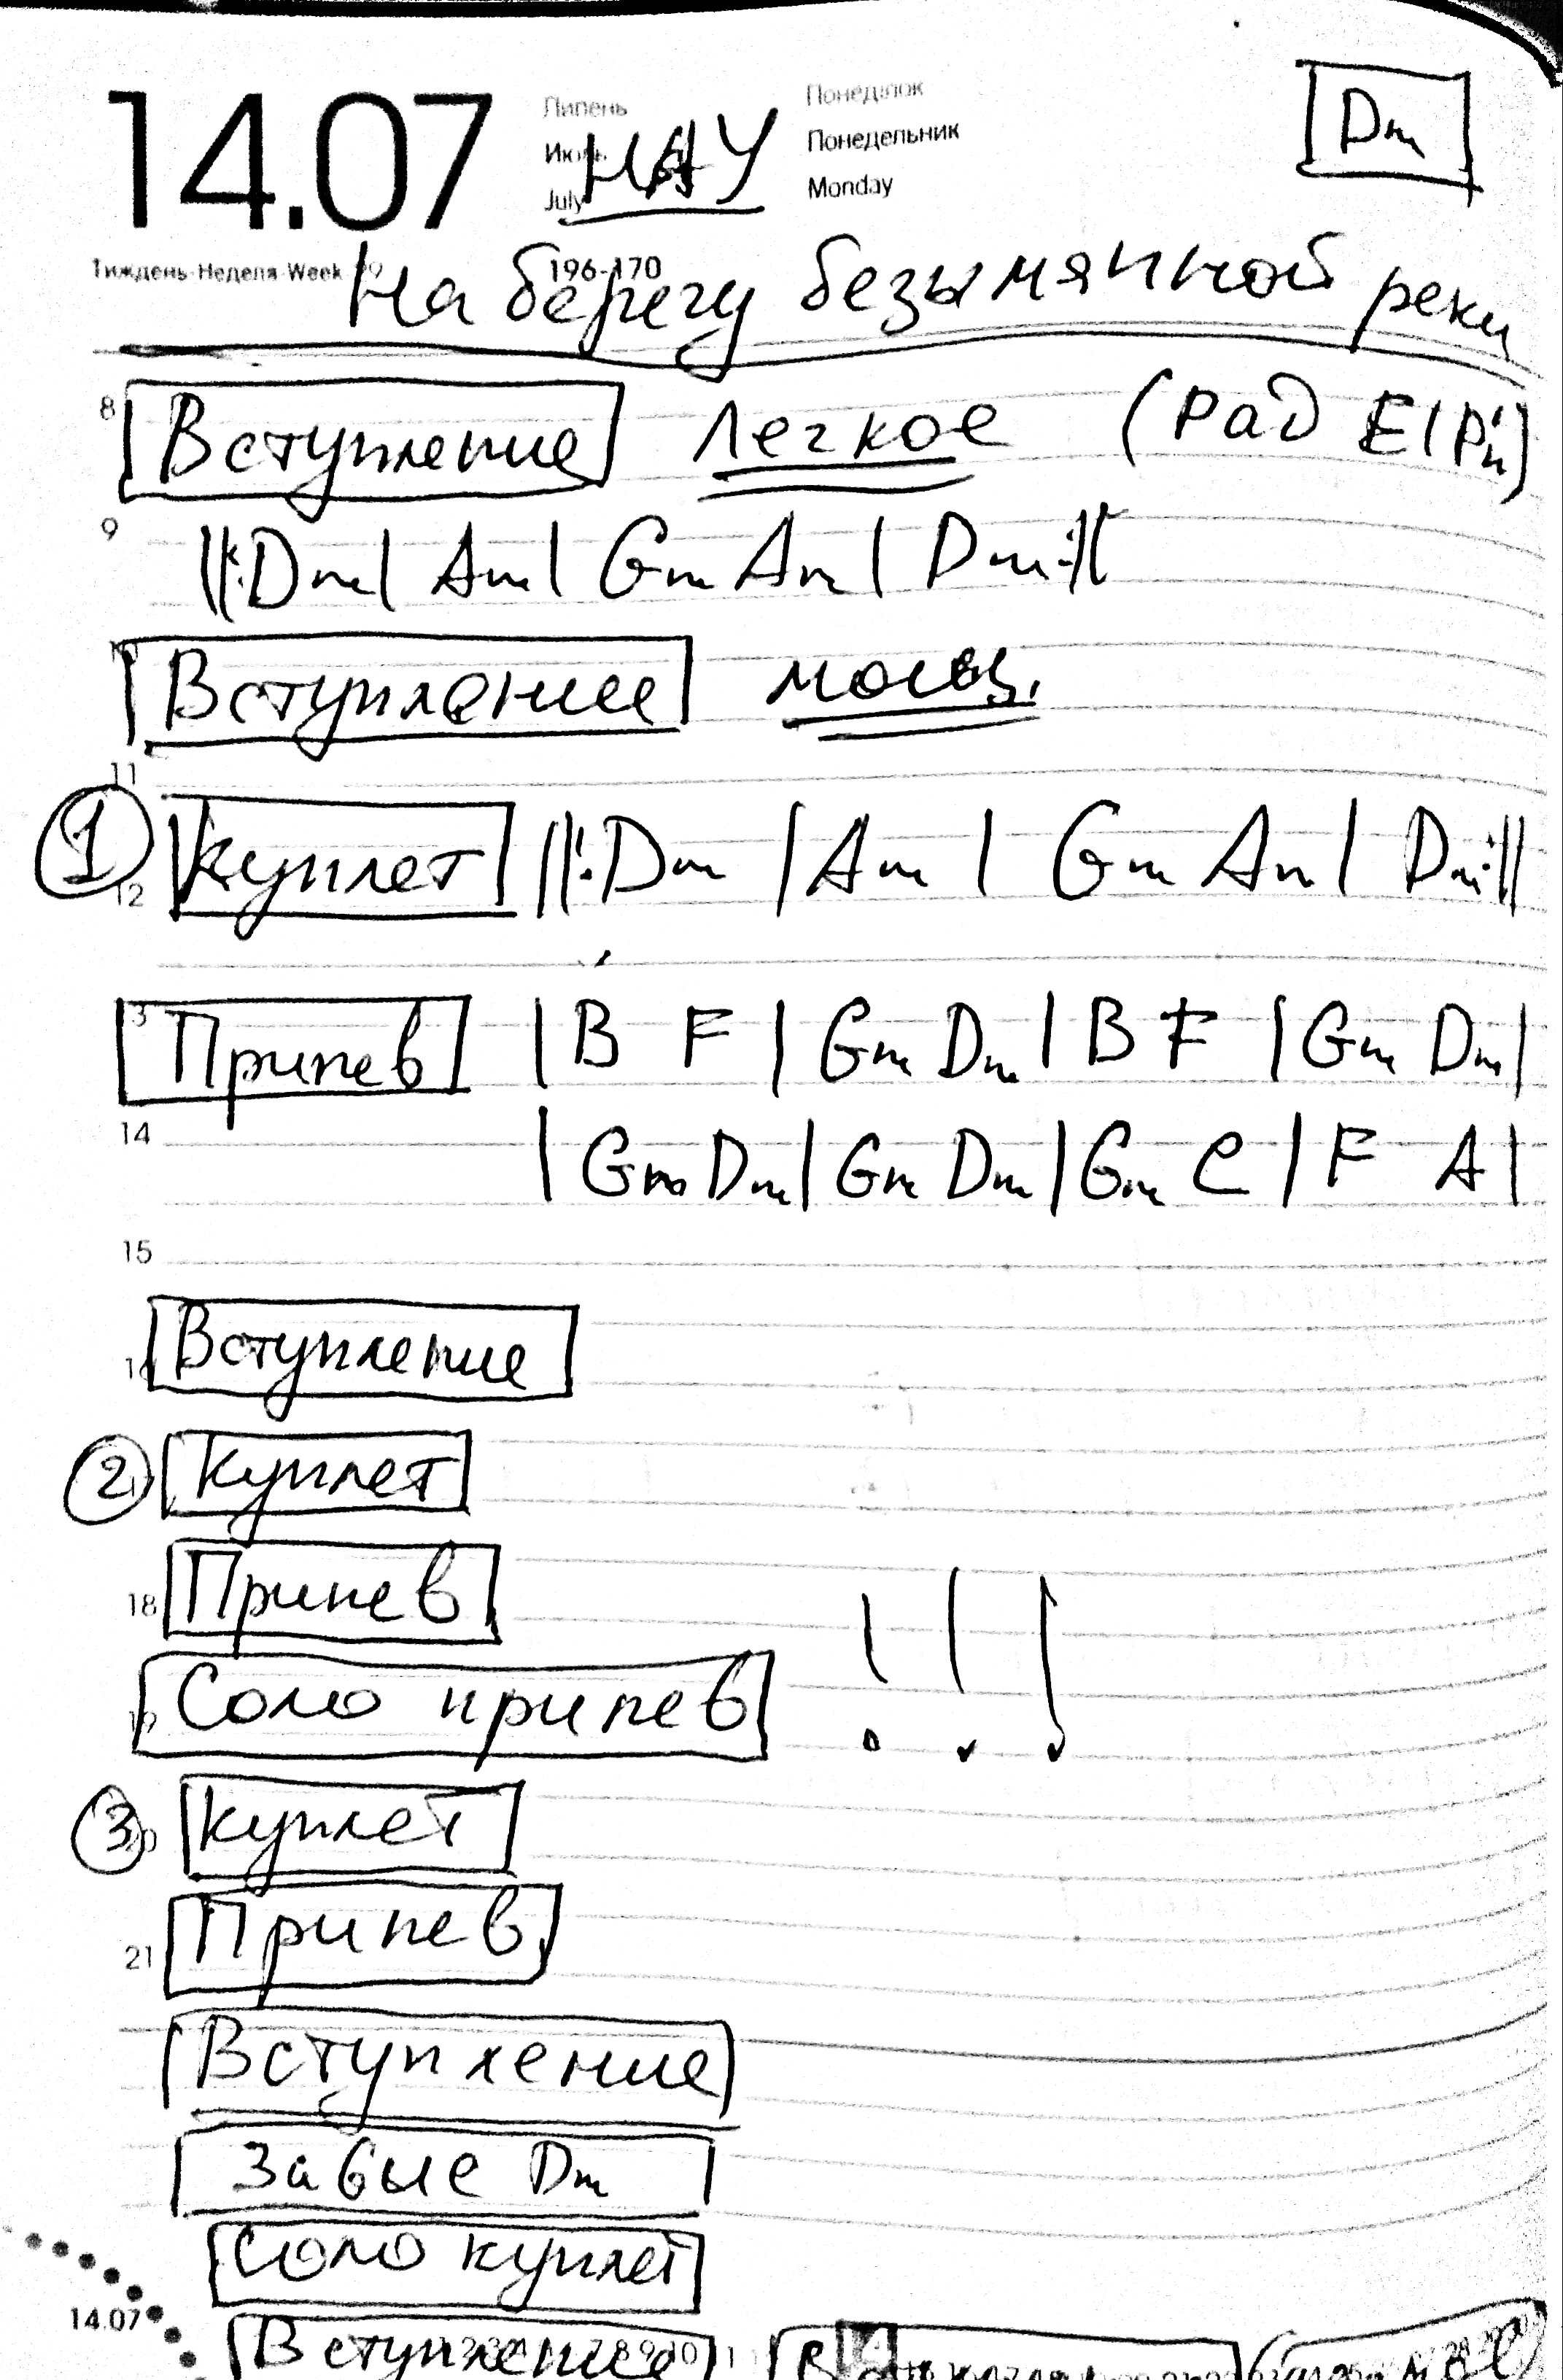 14.07 Липень Понеділок Dm
Июль НАУ Понедельник
July Monday
Тиждень-Неделя-Week 196-170
На берегу безымянной реки
8 Вступление легкое (Pad
9 ||: Dm | Am | Gm Am | Dm :||
10 Вступление мощ.
11
1 Куплет ||: Dm | Am | Gm Am | Dm :||
12
Припев | B F | Gm Dm | B F | Gm Dm |
14 | Gm Dm | Gm Dm | Gm C | F A |
15
Вступление
2 Куплет
18 Припев
Соло припев !!!
3 Куплет
21 Припев
Вступление
Забые Dm
Соло куплет
14.07
Вступление